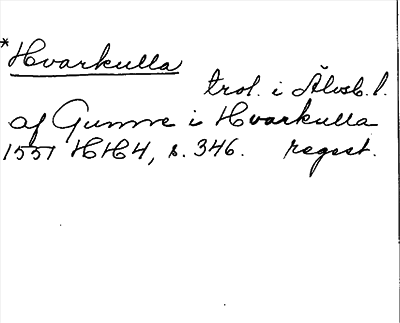 *Hvarkulla
trol. i Älvsb. l.
af Gunne i Hvarkulla
1551 HH4, s. 346. regest.